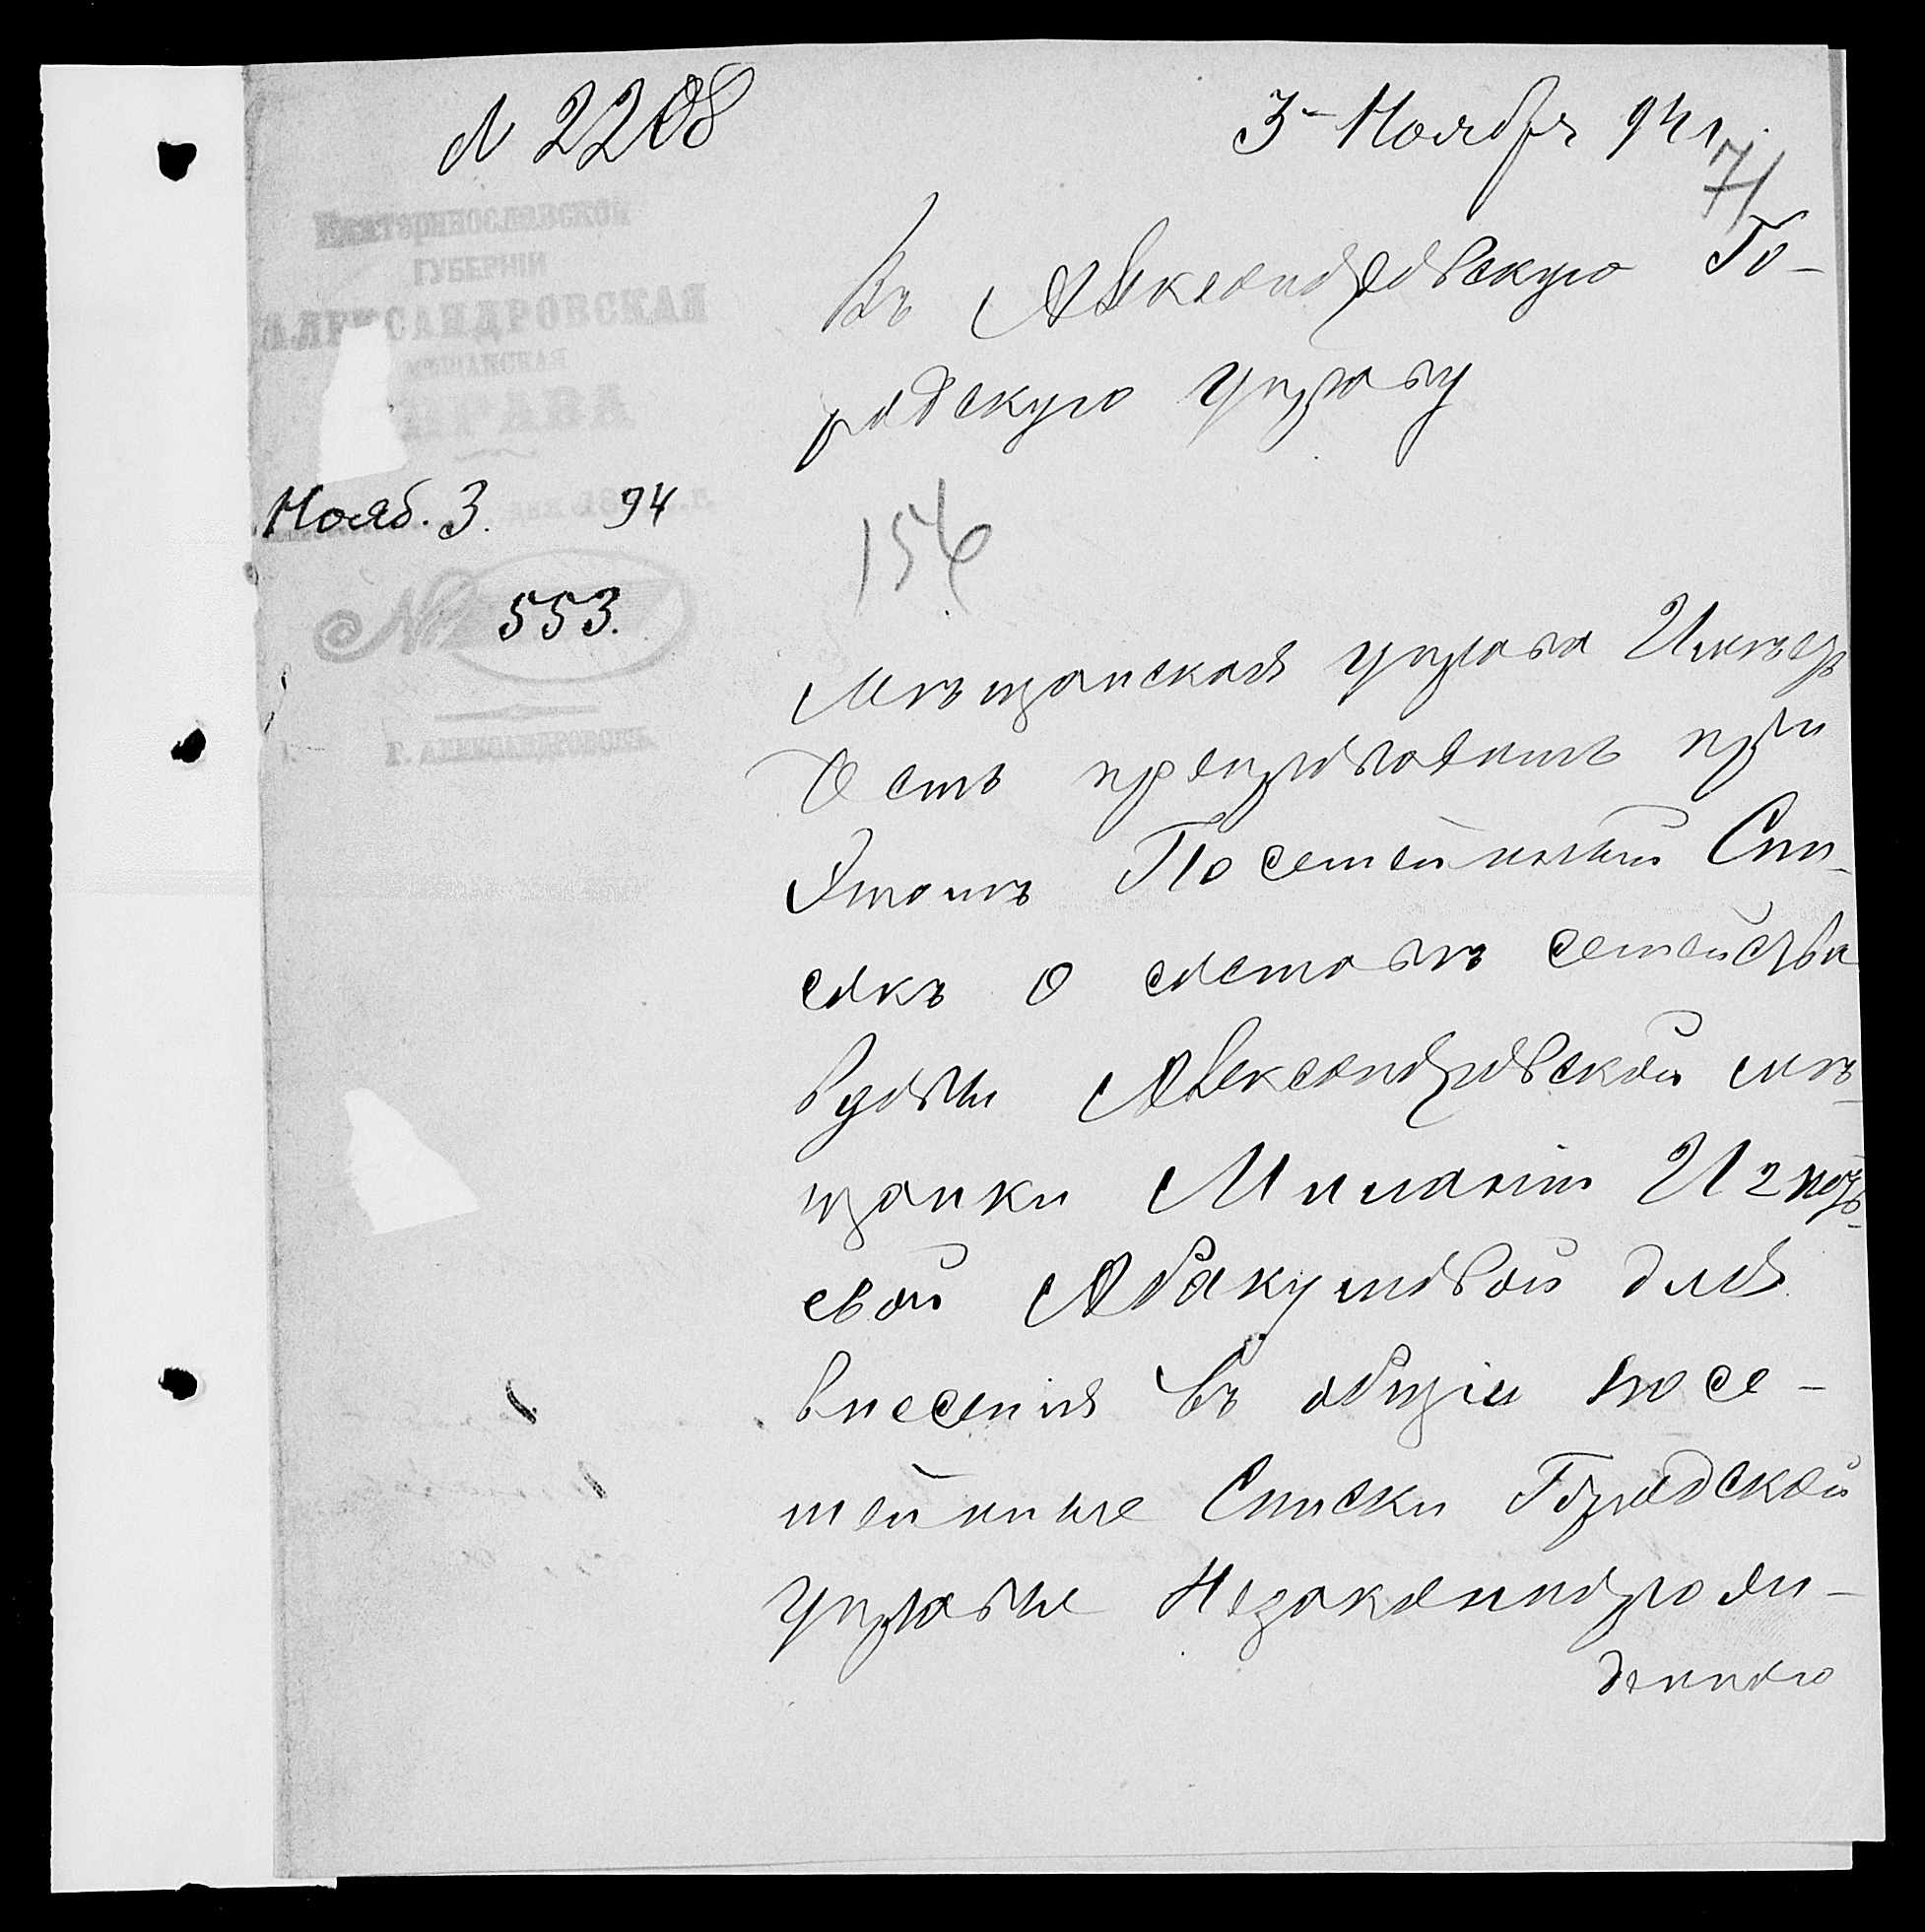 № 2208
3 Ноября 94 г.
71
Екатеринославской
ГУБЕРНІИ
АЛЕКСАНДРОВСКАЯ
МѢЩАНСКАЯ
УПРАВА
Нояб. 3. 94
№ 553.
Г. АЛЕКСАНДРОВСКЪ
Въ Александровскую Го-
родскую управу
156
Мѣщанская управа Имѣетъ
Честь препроводить при
Этомъ Посемейный Спи-
сокъ о составѣ семейства
вдовы Александровской мѣ-
щанки Миланіи
евой Абакумовой для
внесенія въ общіе посе-
мейные Списки Городской
управы Незаконнорож-
деннаго